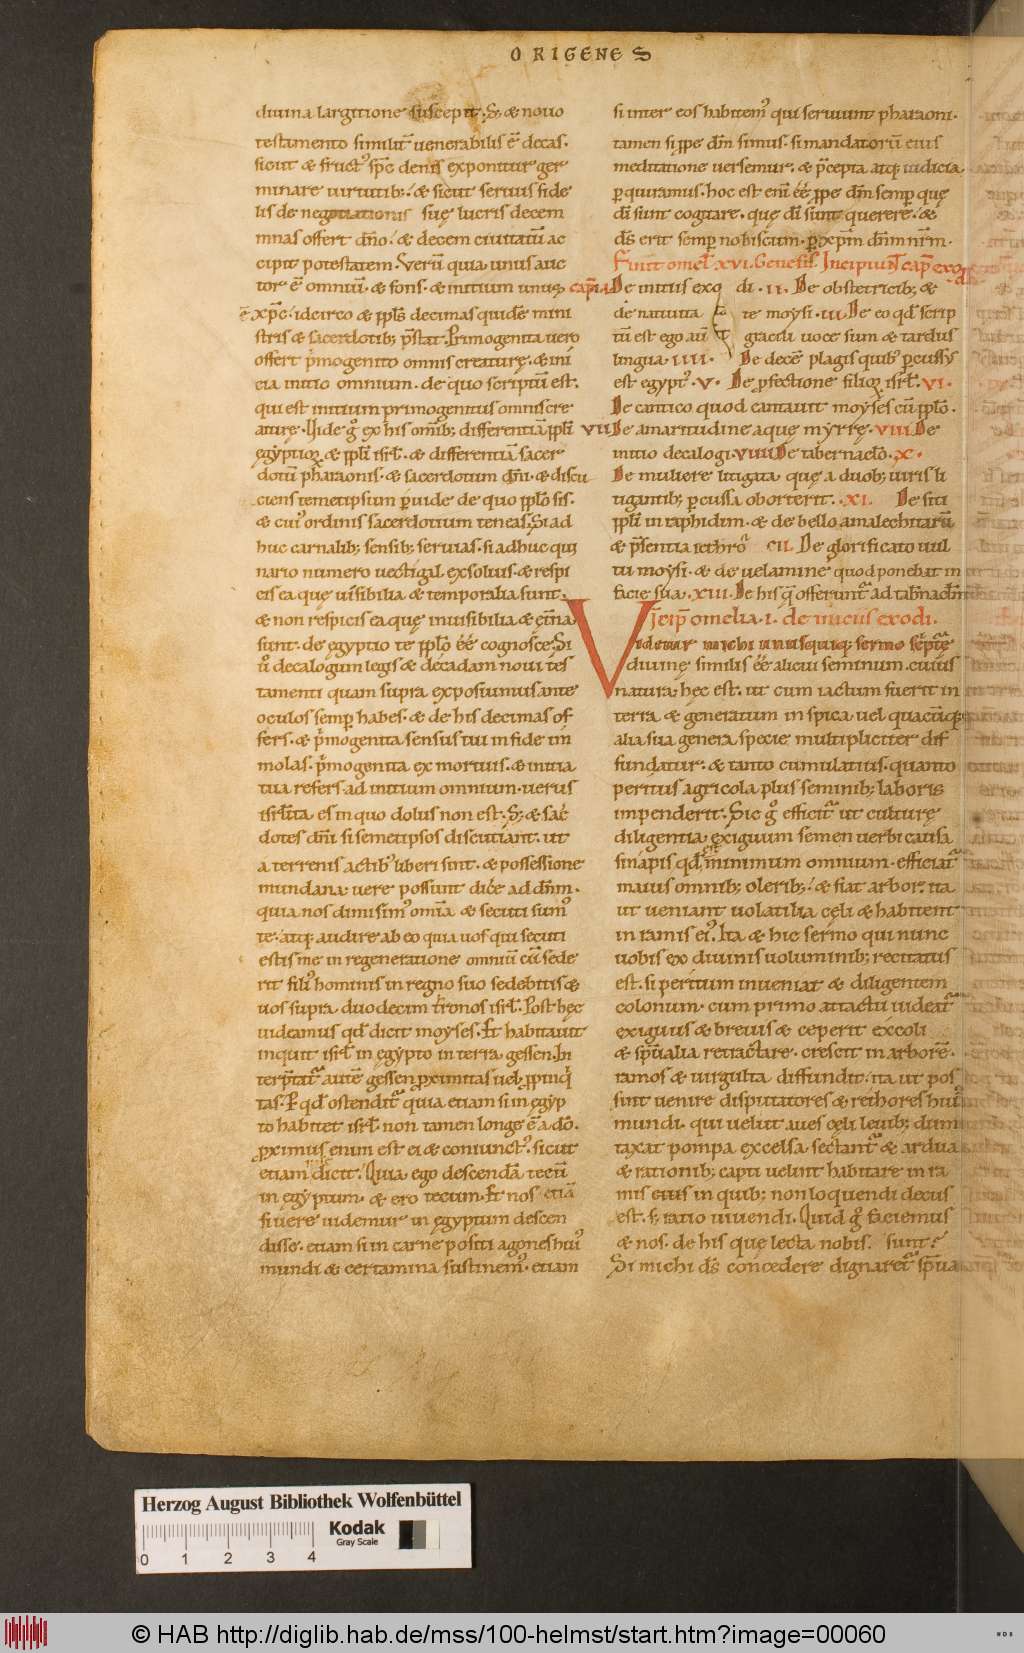 ORIGENES
diuina largitione suscepit. S; & nouo
testamento similit̄ uenerabilis ē decas.
sicut & fruct᾽ sp̄c denis exponitur ger
minare uirtutib;. & sicut seruus fide
lis de negotiationis suę lucris decem
mnas offert dn̄o. & decem ciuitatū ac
cipit potestatem. Verū quia unus auc
tor ē omniū. & fons. & initium unus
ē xp̄c. idcirco & pp̄ls decimas quidē mini
stris & sacerdotib; p̄stat. Primogenita uero
offert p̄mogenito omnis creaturę. & ini
cia initio omnium. de quo scriptū est.
qui est initium primogenitus omnis cre
aturę. Vide g᾽ ex his om̄ib; differentiā pp̄li
ęgyptioꝝ & pp̄li isrl̄. & differentiā sacer
dotū pharaonis. & sacerdotum dn̄i. & discu
ciens temetipsum puide de quo pp̄lo sis.
& cui᾽ ordinis sacerdotium teneas. Si ad
huc carnalib; sensib; seruias. si adhuc qui
nario numero uectigal exsoluis. & respi
cis ea quę uisibilia & temporalia sunt.
& non respicis ea quę inuisibilia & ęt̄na
sunt. de ęgyptio te pp̄lo ēē cognosce. Si
u᾽ decalogum legis & decadam noui tes
tamenti quam supra exposuimus ante
oculos semp̄ habes. & de his decimas of
fers. & p̄mogenita sensus tui in fide im
molas. p̄mogenita ex mortuis. & initia
tua refers ad initium omnium. uerus
isrl̄ita es in quo dolus non est. S; & sac̄
dotes dn̄i si semetipsos discutiant. ut
a terrenis actib᾽ liberi sint. & possessione
mundana. uere possunt dicē ad dn̄m.
quia nos dimisim᾽ om̄ia & secuti sum᾽
te. atq; audire ab eo quia uos qui secuti
estis me in regeneratione omniū cū sede
rit fili᾽ hominis in regno suo sedebitis &
uos supra duodecim t̄ronos isrl̄. Post hęc
uideamus qd̄ dicit moyses. Et habitauit
inquit isrl̄ in ęgypto in terra gessen. In
terp̄tat᾽ autē gessen pximitas uel ppinq̄
tas. P qd̄ ostendit᾽ quia etiam si in ęgyp
to habitet isrl̄ non tamen longe ē a dō.
pximus enim est ei & coniunct᾽. sicut
etiam dicit. Quia ego descendā tecū
in ęgyptum. & ero tecum. Et nos etiā
si uere uidemur in ęgyptum descen
disse. etiam si in carne positi agones hui᾽
mundi & certamina sustinem᾽. etiam
si inter eos habitem᾽ qui seruiunt pharaoni.
tamen si ppe dn̄m simus. si mandatorū eius
meditatione uersemur. & p̄cepta atq; iudicia
pquiramus. hoc est eni ēē ppe dn̄m semp̄ quę
dī sunt cogitare. quę dī sunt querere. &
ds̄ erit semp̄ nobiscum. p xp̄m dn̄m nr̄m.
Finit omel̄ XVI. Genesis. Incipiunt cap̄ exo
di
cap̄la De initiis exo di. II. De obstetricib; &
de natiuita te moysi. III. De eo qd̄ scrip
tū est ego aū graciłi uoce sum & tardus
lingua. IIII. De decē plagis quib᾽ pcussus
est egypt᾽. V. De pfectione filioꝝ isrl̄. VI.
De cantico quod cantauit moyses cū pp̄lo.
VII De amaritudine aquę myrrę. VIII De
initio decalogi. VIIII De tabernac̄lo. X.
De muliere litigata quę a duob; uiris li
tigantib; pcussa oborterit. XI. De siti
pp̄li in raphidim. & de bello amalechitarū
& p̄sentia iethro XII. De glorificato uul
tu moysi. & de uelamine quod ponebat in
facie sua. XIII. De his quę offerunt᾽ ad tab̄nacl̄m
Incip̄ omelia. I. de iniciis exodi.
Videtur michi unusquisq; sermo sc̄ptuę
diuinę similis ēē alicui seminum. cuius
natura hęc est. ut cum iactum fuerit in
terra & generatum in spica uel quacūq;
alia sua genera specie multipliciter dif
fundatur. & tanto cumulatius. quanto
peritus agricola plus seminib; laboris
impenderit. Sic g᾽ efficit᾽ ut culturę
diligentia. exiguum semen uerbi causa
sinapis qd̄ minimum omnium. efficiat᾽
maius omnib; oleribus;. & fiat arbor. ita
ut ueniant uolatilia cęli & habitent
in ramis ei᾽. Ita & hic sermo qui nunc
uobis ex diuinis uoluminib; recitatus
est. si peritum inueniat & diligentem
colonum. cum primo attactu uideat᾽
exiguus & breuis & ceperit excoli
& sp̄ualia retractare. crescit in arborē.
ramos & uirgulta diffundit. ita ut pos
sint uenire disputatores & rethores hui᾽
mundi. qui uelut aues cęli leuib; dum
taxat pompa excelsa sectant᾽ & ardua
& rationib; capti uelint habitare in ra
mis eius in quib; non loquendi decus
est. s; ratio uiuendi. Quid g᾽ faciemus
& nos. de his quę lecta nobis sunt?
Si michi ds̄ concedere dignaret᾽ sp̄ua
Herzog August Bibliothek Wolfenbüttel
0 1 2 3 4
Kodak
Gray Scale
© HAB http://diglib.hab.de/mss/100-helmst/start.htm?image=00060